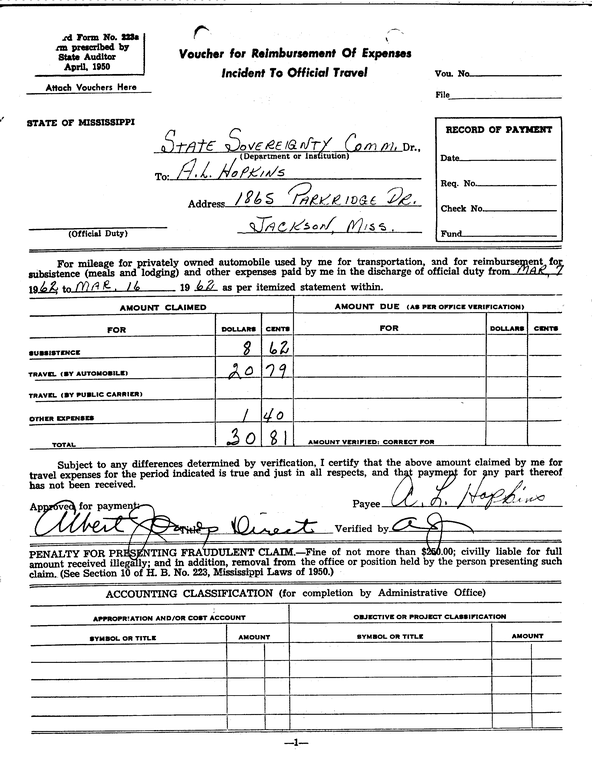 rd Form No. 223a
rm prescribed by
State Auditor
April, 1950
Attach Vouchers Here
Voucher for Reimbursement Of Expenses
Incident To Official Travel
Vou. No.
File
STATE OF MISSISSIPPI
STATE SOVEREIGNTY COMM. Dr.,
(Department or Institution)
To: A.L. HOPKINS
Address 1865 PARKRIDGE DR.
JACKSON, MISS.
(Official Duty)
RECORD OF PAYMENT
Date
Req. No.
Check No.
Fund
For mileage for privately owned automobile used by me for transportation, and for reimbursement for
subsistence (meals and lodging) and other expenses paid by me in the discharge of official duty from MAR, 7
1962, to MAR. 16 1962 as per itemized statement within.
AMOUNT CLAIMED AMOUNT DUE (AS PER OFFICE VERIFICATION)
FOR DOLLARS CENTS FOR DOLLARS CENTS
SUBSISTENCE 8 62
TRAVEL (BY AUTOMOBILE) 20 79
TRAVEL (BY PUBLIC CARRIER)
OTHER EXPENSES 1 40
TOTAL 30 81 AMOUNT VERIFIED: CORRECT FOR
Subject to any differences determined by verification, I certify that the above amount claimed by me for
travel expenses for the period indicated is true and just in all respects, and that payment for any part thereof
has not been received.
Payee A. L. Hopkins
Approved for payment:
Albert Jones Direct Verified by AJ
PENALTY FOR PRESENTING FRAUDULENT CLAIM.—Fine of not more than $250.00; civilly liable for full
amount received illegally; and in addition, removal from the office or position held by the person presenting such
claim. (See Section 10 of H. B. No. 223, Mississippi Laws of 1950.)
ACCOUNTING CLASSIFICATION (for completion by Administrative Office)
APPROPRIATION AND/OR COST ACCOUNT OBJECTIVE OR PROJECT CLASSIFICATION
SYMBOL OR TITLE AMOUNT SYMBOL OR TITLE AMOUNT
—1—